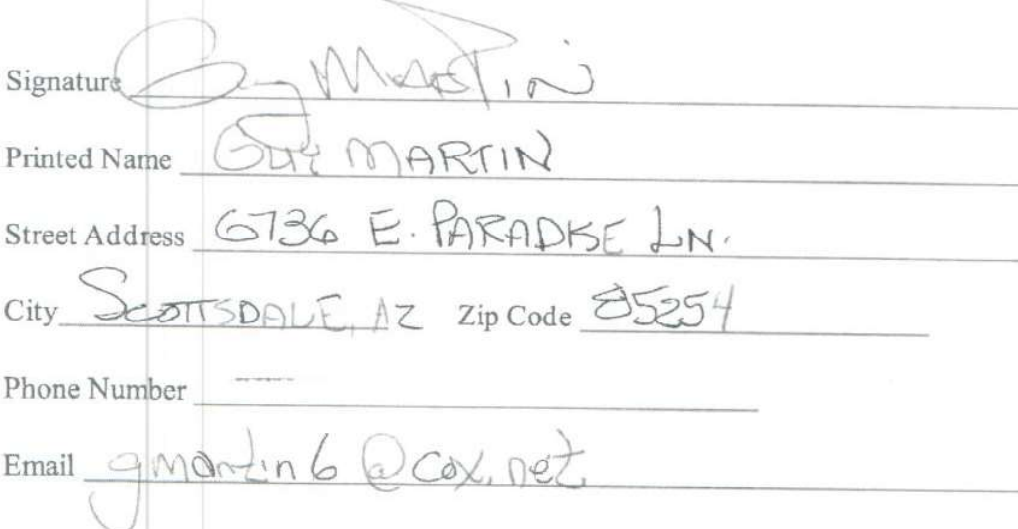 Signature Guy Martin
Printed Name GUY MARTIN
Street Address 6736 E. PARADISE LN.
City SCOTTSDALE, AZ Zip Code 85254
Phone Number ----
Email gmartin6@cox.net